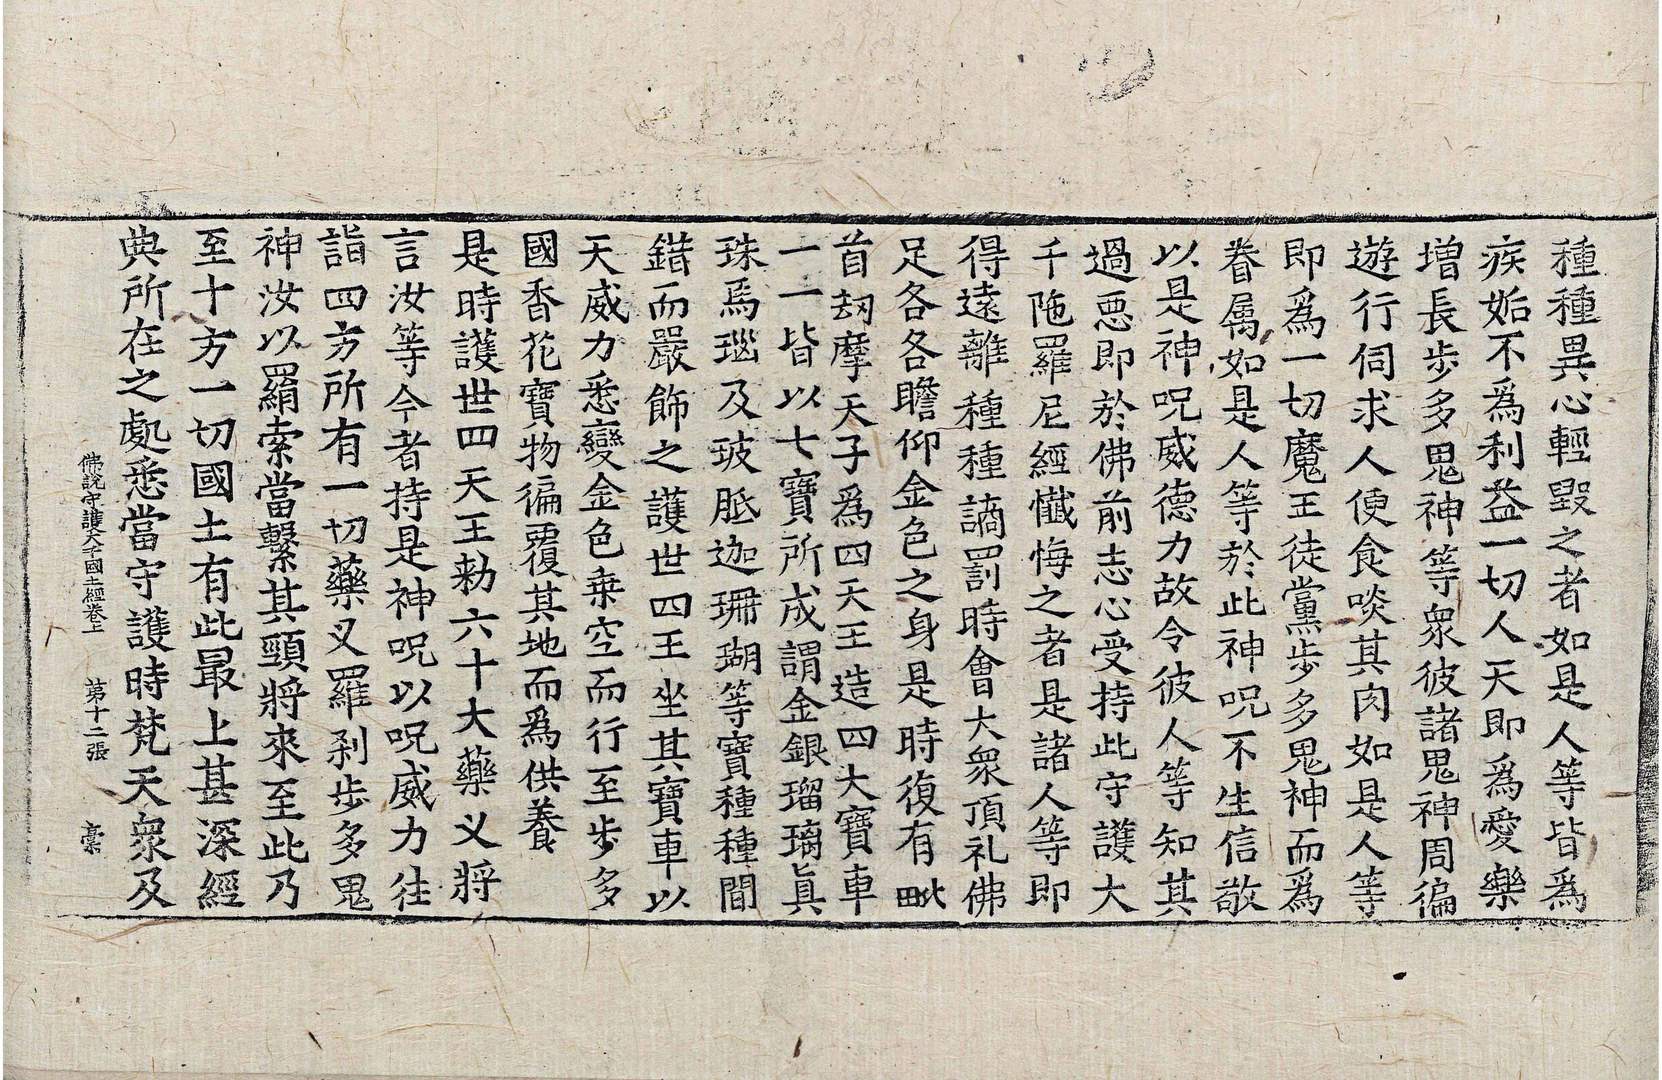 種種異心輕毀之者如是人等皆爲
疾妬不爲利益一切人天即爲愛樂
增長步多鬼神等衆彼諸鬼神周徧
遊行伺求人便食啖其肉如是人等
即爲一切魔王徒黨步多鬼神而爲
眷屬如是人等於此神呪不生信敬
以是神呪威德力故令彼人等知其
過惡即於佛前志心受持此守護大
千陁羅尼經懺悔之者是諸人等即
得遠離種種謫罰時會大衆頂礼佛
足各各瞻仰金色之身是時復有毗
首刼摩天子爲四天王造四大寶車
一一皆以七寶所成謂金銀瑠璃真
珠馬瑙及玻胝迦珊瑚等寶種種間
錯而嚴飾之護世四王坐其寶車以
天威力悉變金色乗空而行至步多
國香花寶物徧覆其地而爲供養
是時護世四天王勑六十大藥叉將
言汝等今者持是神呪以呪威力往
詣四方所有一切藥叉羅刹步多鬼
神汝以羂索當繫其頸將來至此乃
至十方一切國土有此最上甚深經
典所在之處悉當守護時梵天衆及
佛說守護大千國土經卷上 第十二張 槀